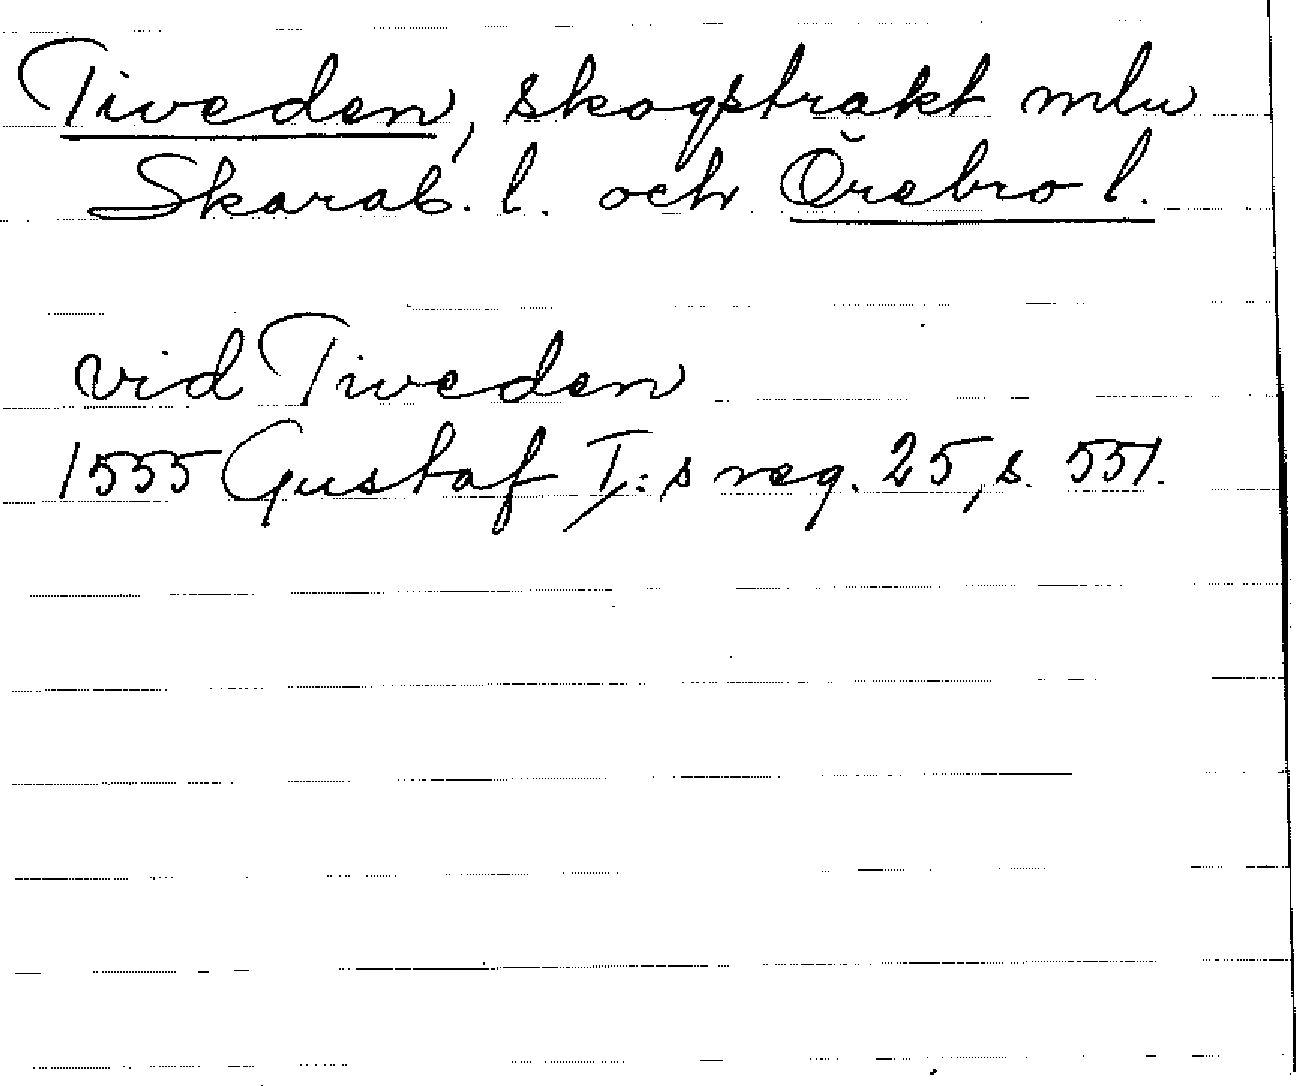 Tiveden, skogstrakt mlu
Skarab. l. och Örebro l.
vid Tiweden
1555 Gustaf I:s reg. 25, s. 551.